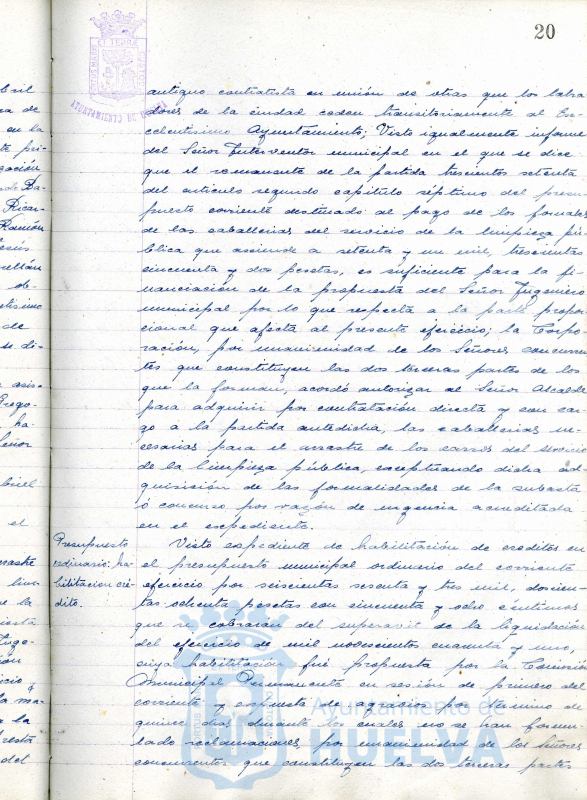 20
AYUNTAMIENTO DE HUELVA
antiguo contratista en unión de otras que los labra
dores de la ciudad ceden transitoriamente al Ex-
celentísimo Ayuntamiento; Visto igualmente informe
del Señor Interventor municipal en el que se dice
que el remanente de la partida trescientos setenta
del artículo segundo capítulo séptimo del presu
puesto corriente destinado al pago de los jornales
de las caballerías del servicio de la limpieza pú-
blica que asciende a setenta y un mil, trescientas
cincuenta y dos pesetas, es suficiente para la fi-
nanciación de la propuesta del Señor Ingeniero
municipal por lo que respecta a la parte propor
cional que afecta al presente ejercicio; la Corpo-
ración, por unanimidad de los Señores concurren
tes que constituyen las dos terceras partes de los
que la forman, acordó autorizar al Señor Alcalde
para adquirir por contratación directa y con car
go á la partida antedicha, las caballerías ne-
cesarias para el arrastre de los carros del servicio
de la limpieza pública, exceptuando dicha ad-
quisición de las formalidades de la subasta
ó concurso por razón de urgencia acreditada
en el expediente.
Presupuesto
ordinario: ha-
bilitacion cré-
dito.
Visto expediente de habilitación de creditos en
el presupuesto municipal ordinario del corriente
ejercicio por seiscientas sesenta y tres mil, doscien-
tas ochenta pesetas con cincuenta y ocho centimos
que se cobrarán del superavit de la liquidación
del ejercicio de mil novecientos cuarenta y uno,
cuya habilitación fué propuesta por la Comisión
Municipal Permanente en sesión de primero del
corriente y expuesta de agravios por término de
quince días durante los cuales no se han formu-
lado reclamaciones, por unanimidad de los Señores
concurrentes que constituyen las dos terceras partes
Ayuntamiento de
HUELVA